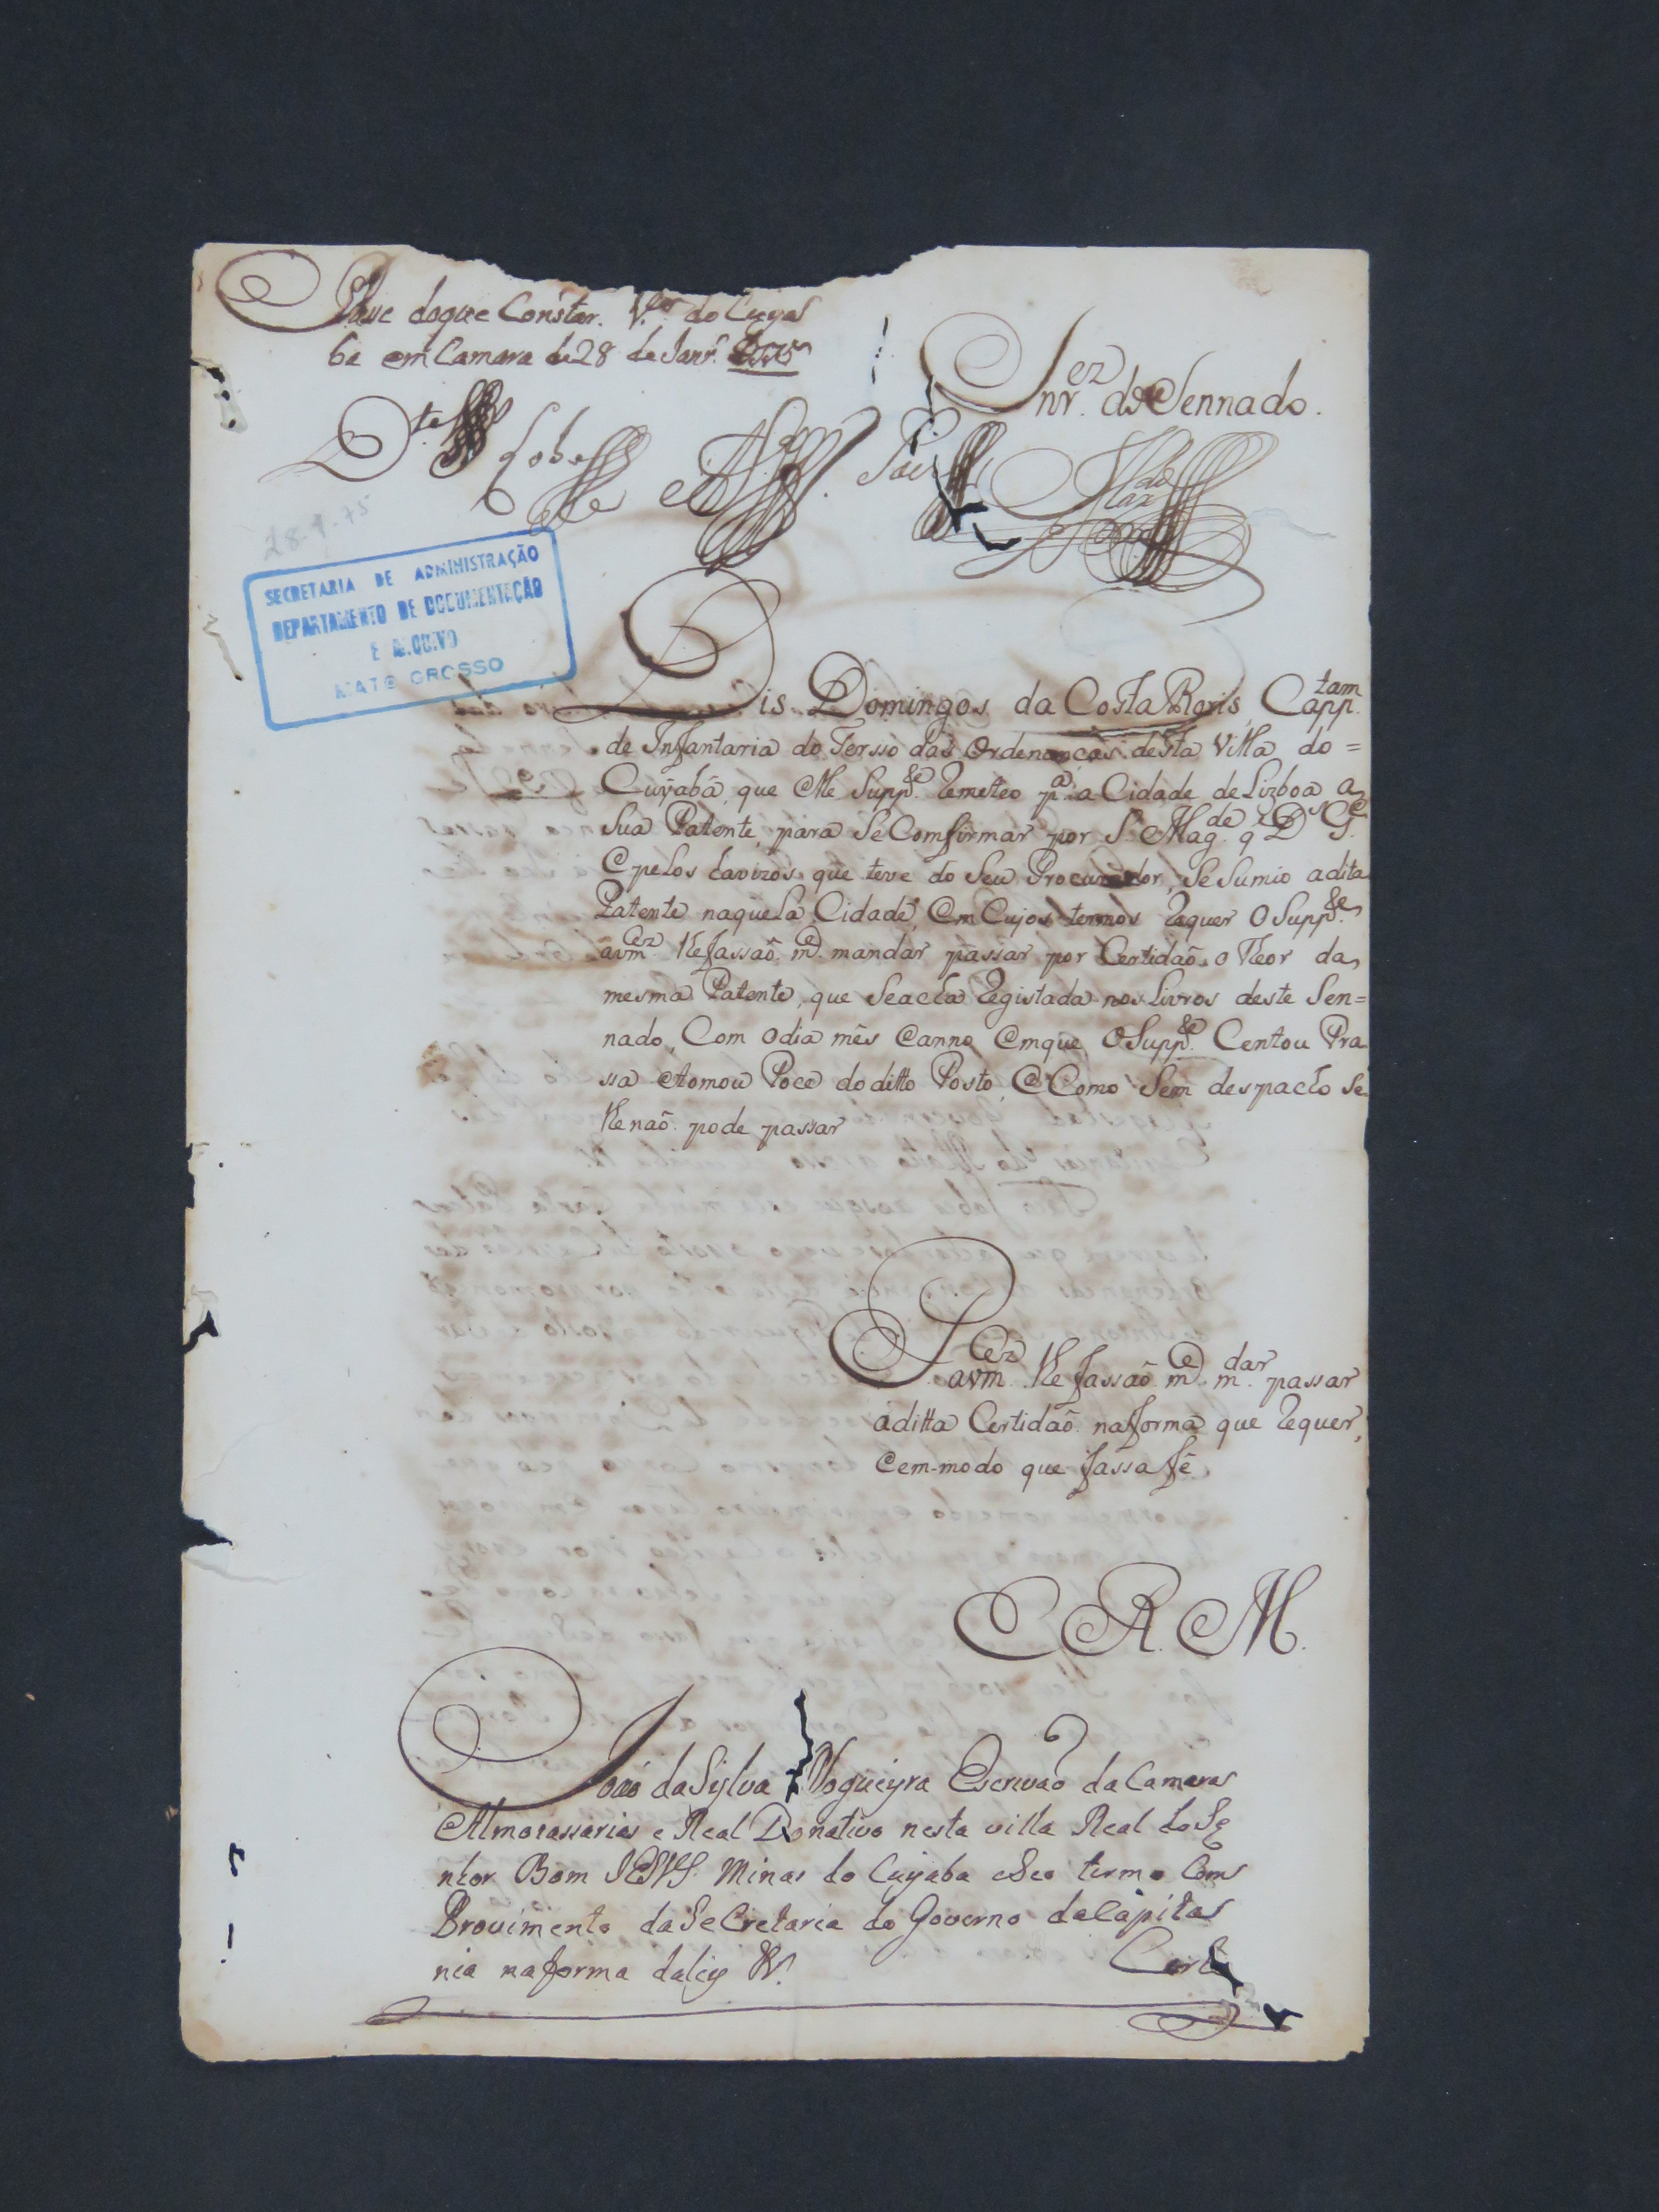 Passe do que Constar. V.ª do Cuya
ba em Camara de 28 de Janr.º 1775
Snr.ez do Sennado.
D.te Lobo
Paes
28-1-75
SECRETARIA DE ADMINISTRAÇÃO
DEPARTAMENTO DE DOCUMENTAÇÃO
E ARQUIVO
MATO GROSSO
Dis Domingos da Costa Roris, Capp.tam
de Infantaria do Tersso das Ordenanças desta Villa do=
Cuyabá, que elle Supp.te Remeteo p.ª a Cidade de Lizboa a
Sua Patente, para Se Comfirmar por S. Mag.de q D.s G.e
e pelos havizos que teve do Seu Procurador, Se Sumio a dita
Patente naquela Cidade, em Cujos termos Requer o Supp.te
a vm.cez lhe fassaõ m.e mandar passar por Certidaõ o theor da
mesma Patente, que Se acha Registada nos Livros deste Sen=
nado, Com o dia mês e anno em que o Supp.te Centou Pra
ssa e tomou Poce do ditto Posto, e Como Sem despacho Se
lhe naõ pode passar
P. a vm.cez lhe fassaõ m.e m.dar passar
a ditta Certidaõ na forma que Requer,
e em modo que fassa fé
E R. M.
Joaõ da Sylva Nogueyra Escrivaõ da Camara
Almotassarias e Real Donativo nesta villa Real do Se
nhor Bom JESUS Minas do Cuyaba e Seo termo Com
Provimento da SeCretaria do Governo da Capita
nia na forma da ley &.